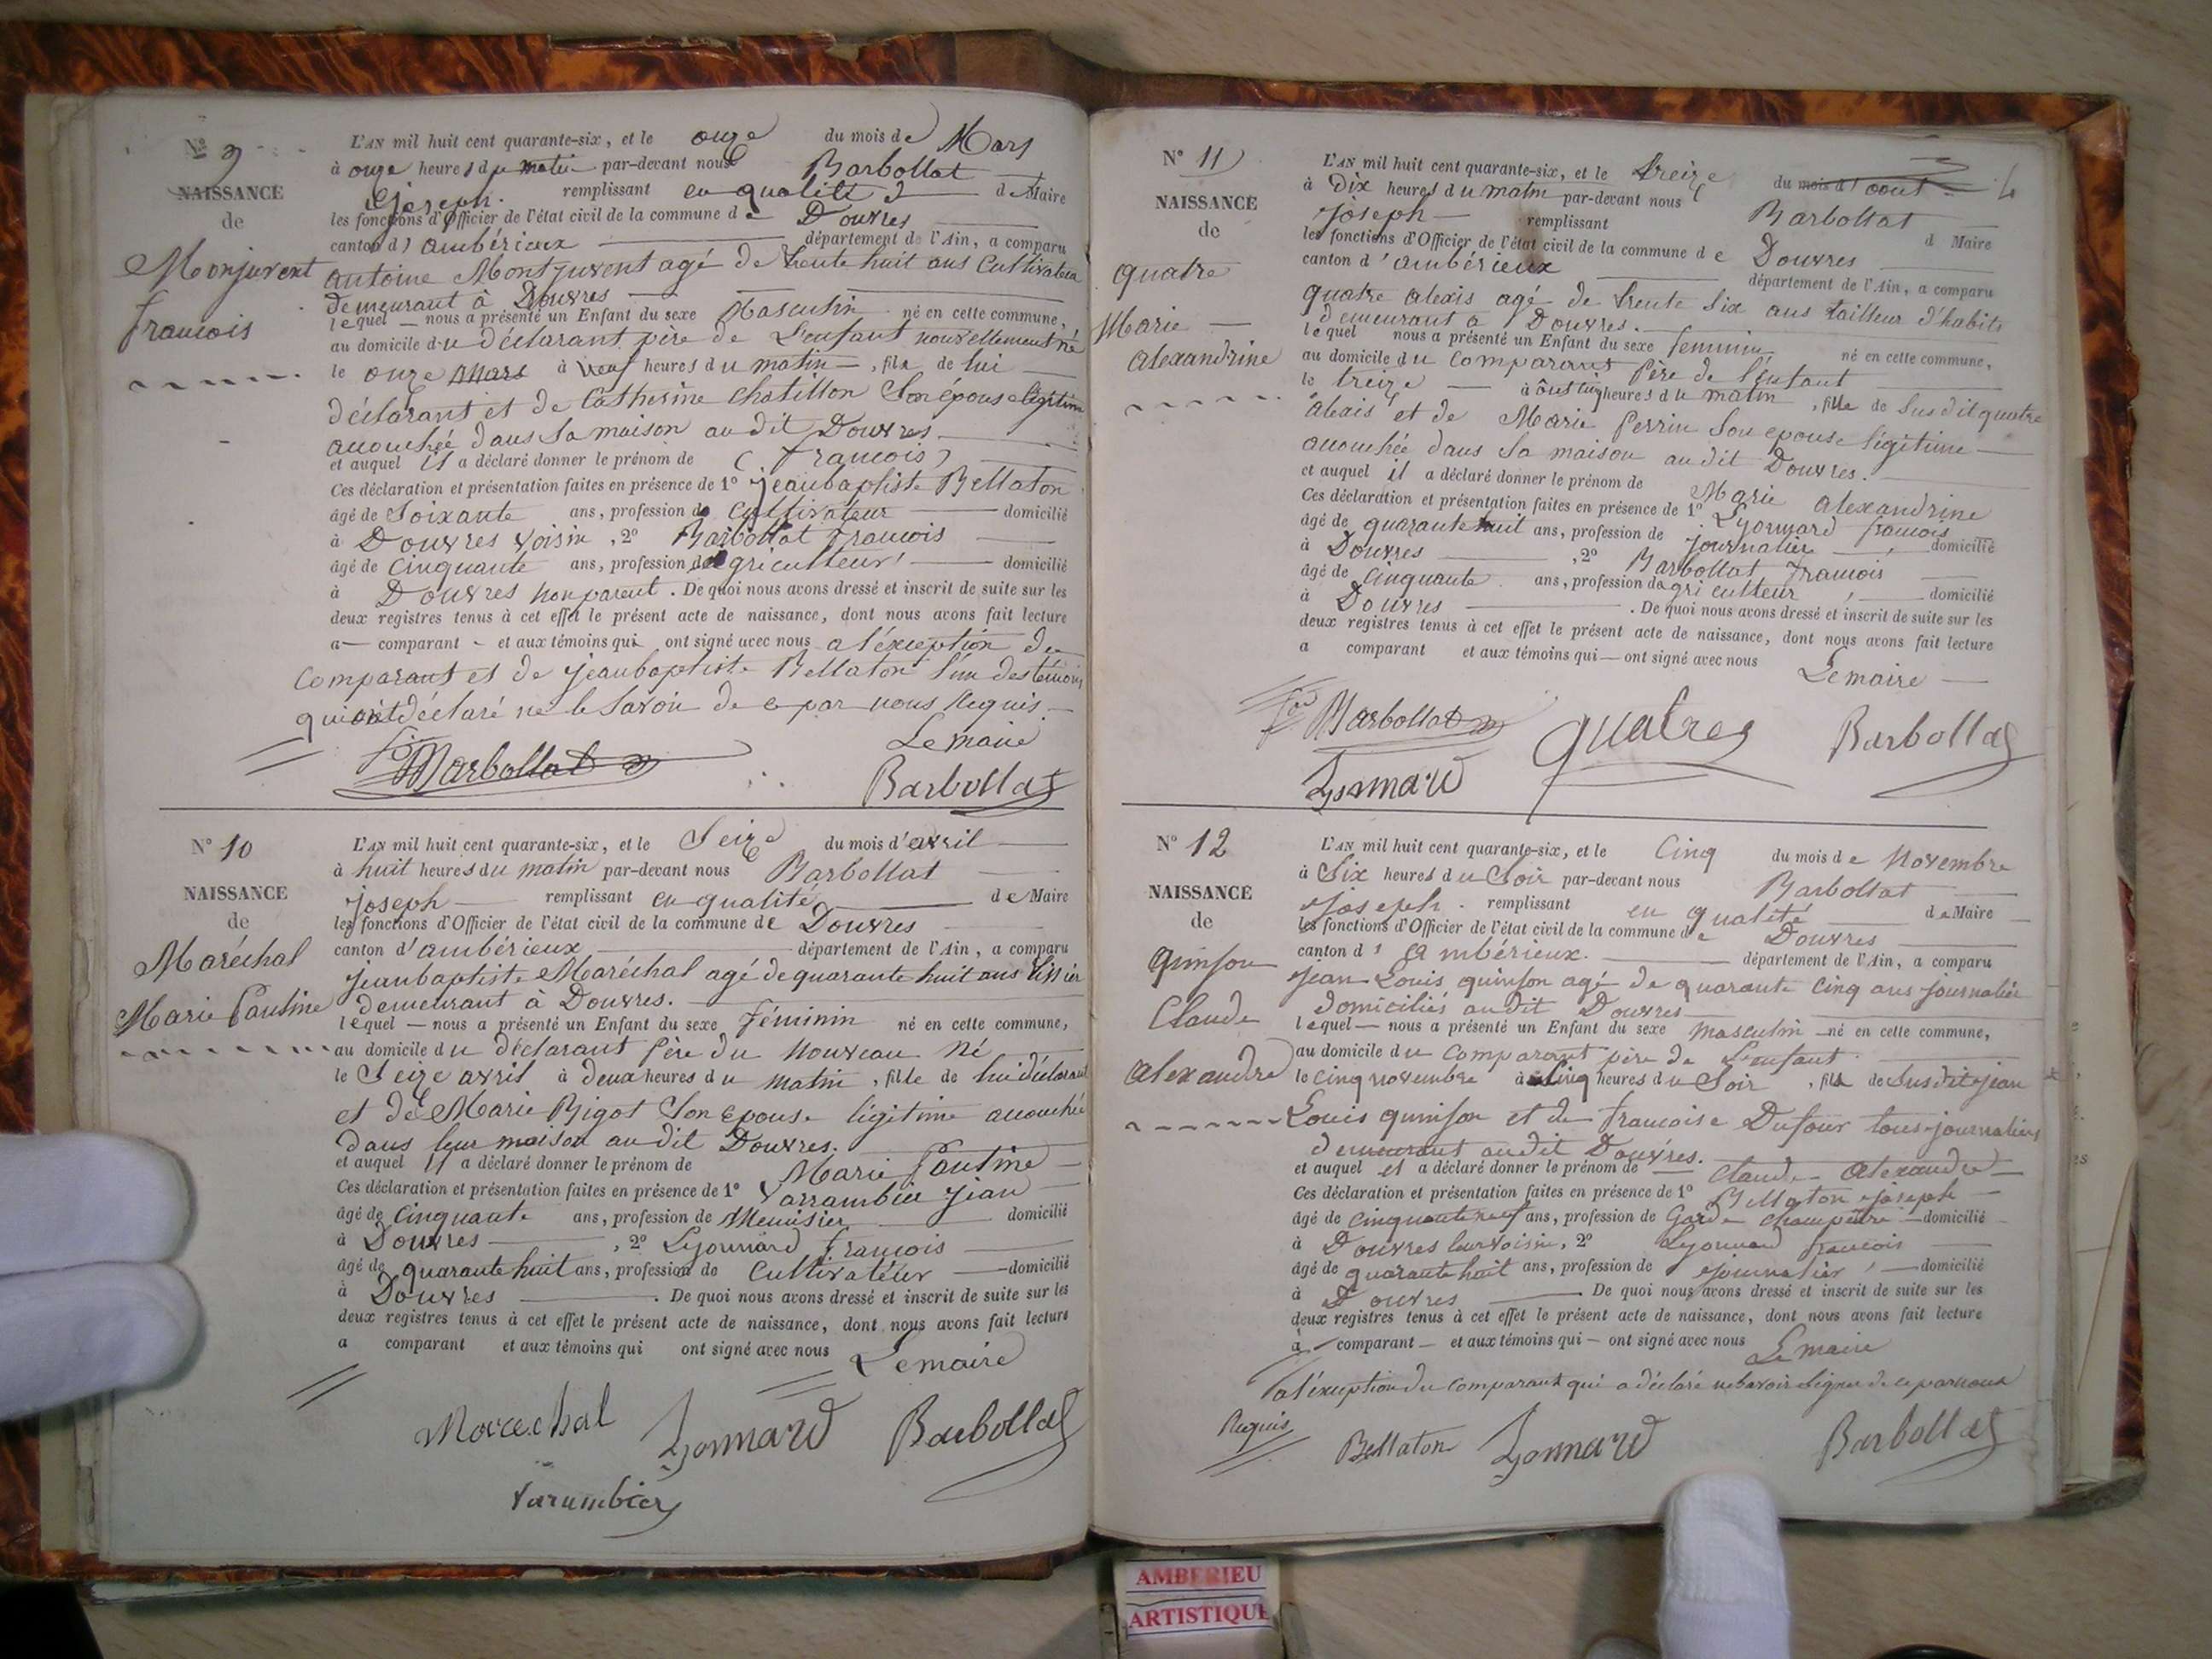 N° 9
NAISSANCE
de
Monjuvent
francois
L'AN mil huit cent quarante-six, et le onze du mois de Mars
à onze heures du matin par-devant nous Barbollat
joseph. remplissant en qualité de Maire
les fonctions d'Officier de l'état civil de la commune de Douvres
canton d'ambérieux département de l'Ain, a comparu
antoine Montjuvent agé de trente huit ans Cultivateur
demeurant à Douvres
lequel — nous a présenté un Enfant du sexe Masculin né en cette commune,
au domicile du déclarant père de L'enfant nouvellement né
le onze Mars à neuf heures du matin —, fils de lui
déclarant et de Catherine Chatillon Son épouse légitime
accouchée dans Sa maison au dit Douvres
et auquel il a déclaré donner le prénom de (francois)
Ces déclaration et présentation faites en présence de 1° jeanbaptiste Bellaton
âgé de Soixante ans, profession de Cultivateur domicilié
à Douvres voisin, 2° Barbollat francois
âgé de Cinquante ans, profession d'agriculteur domicilié
à Douvres non parent. De quoi nous avons dressé et inscrit de suite sur les
deux registres tenus à cet effet le présent acte de naissance, dont nous avons fait lecture
a — comparant - et aux témoins qui ont signé avec nous a l'éxception du
Comparant et de jeanbaptiste Bellaton l'un des témoins
qui ont déclaré ne le Savoir de ce par nous Requis.
Le maire
Barbollat Barbollat
N° 10
NAISSANCE
de
Maréchal
Marie Pauline
L'AN mil huit cent quarante-six, et le Seize du mois d'avril
à huit heures du matin par-devant nous Barbollat
joseph remplissant en qualité de Maire
les fonctions d'Officier de l'état civil de la commune de Douvres
canton d'ambérieux département de l'Ain, a comparu
jeanbaptiste Maréchal agé de quarante huit ans tissier
demeurant à Douvres.
lequel — nous a présenté un Enfant du sexe féminin né en cette commune,
au domicile du déclarant père du Nouveau né
le Seize avril à deux heures du matin, fille de lui déclarant
et de Marie Bigot Son épouse légitime accouchée
dans leur maison au dit Douvres.
et auquel il a déclaré donner le prénom de Marie Pauline
Ces déclaration et présentation faites en présence de 1° Varrambier jean
âgé de Cinquante ans, profession de Menuisier domicilié
à Douvres, 2° Lyonnard francois
âgé de quarante huit ans, profession de Cultivateur domicilié
à Douvres. De quoi nous avons dressé et inscrit de suite sur les
deux registres tenus à cet effet le présent acte de naissance, dont nous avons fait lecture
a comparant et aux témoins qui ont signé avec nous Lemaire
Marechal Lyonnard Barbollat
Varumbier
N° 11
NAISSANCE
de
quatre
Marie
alexandrine
L'AN mil huit cent quarante-six, et le treize du mois d'aout
à Dix heures du matin par-devant nous Barbollat
joseph remplissant d Maire
les fonctions d'Officier de l'état civil de la commune de Douvres
canton d'ambérieux département de l'Ain, a comparu
quatre alexis agé de trente Six ans tailleur d'habits
demeurant a Douvres.
lequel nous a présenté un Enfant du sexe feminin né en cette commune,
au domicile du Comparant père de l'enfant
le treize à heures du matin, fille de Susdit quatre
alexis et de Marie Perrin Son epouse légitime
accouchée dans Sa maison au dit Douvres.
et auquel il a déclaré donner le prénom de Marie alexandrine
Ces déclaration et présentation faites en présence de 1° Lyonnard francois
âgé de quarante huit ans, profession de journalier, domicilié
à Douvres, 2° Barbollat francois
âgé de Cinquante ans, profession d'agriculteur, domicilié
à Douvres. De quoi nous avons dressé et inscrit de suite sur les
deux registres tenus à cet effet le présent acte de naissance, dont nous avons fait lecture
a comparant et aux témoins qui — ont signé avec nous Lemaire
Barbollat quatre Barbollat
Lyonnard
N° 12
NAISSANCE
de
quinson
Claude
alexandre
L'AN mil huit cent quarante-six, et le Cinq du mois de Novembre
à Six heures du Soir par-devant nous Barbollat
joseph. remplissant en qualité de Maire
les fonctions d'Officier de l'état civil de la commune de Douvres
canton d'ambérieux. département de l'Ain, a comparu
jean Louis quinson agé de quarante cinq ans journalier
domiciliés audit Douvres
lequel — nous a présenté un Enfant du sexe masculin né en cette commune,
au domicile du Comparant père de L'enfant
le cinq novembre à Cinq heures du Soir, fils de Susdit jean
Louis quinson et de francoise Dufour tous journaliers
demeurant audit Douvres.
et auquel il a déclaré donner le prénom de Claude Alexandre
Ces déclaration et présentation faites en présence de 1° Bellaton joseph
âgé de cinquante neuf ans, profession de Garde champetre domicilié
à Douvres leur voisin, 2° Lyonnard francois
âgé de quarante huit ans, profession de journalier, domicilié
à Douvres De quoi nous avons dressé et inscrit de suite sur les
deux registres tenus à cet effet le présent acte de naissance, dont nous avons fait lecture
à comparant — et aux témoins qui — ont signé avec nous Le maire
a l'éxception du comparant qui a déclaré ne Savoir Signer de ce par nous
Requis
Bellaton Lyonnard Barbollat
AMBERIEU
ARTISTIQUE